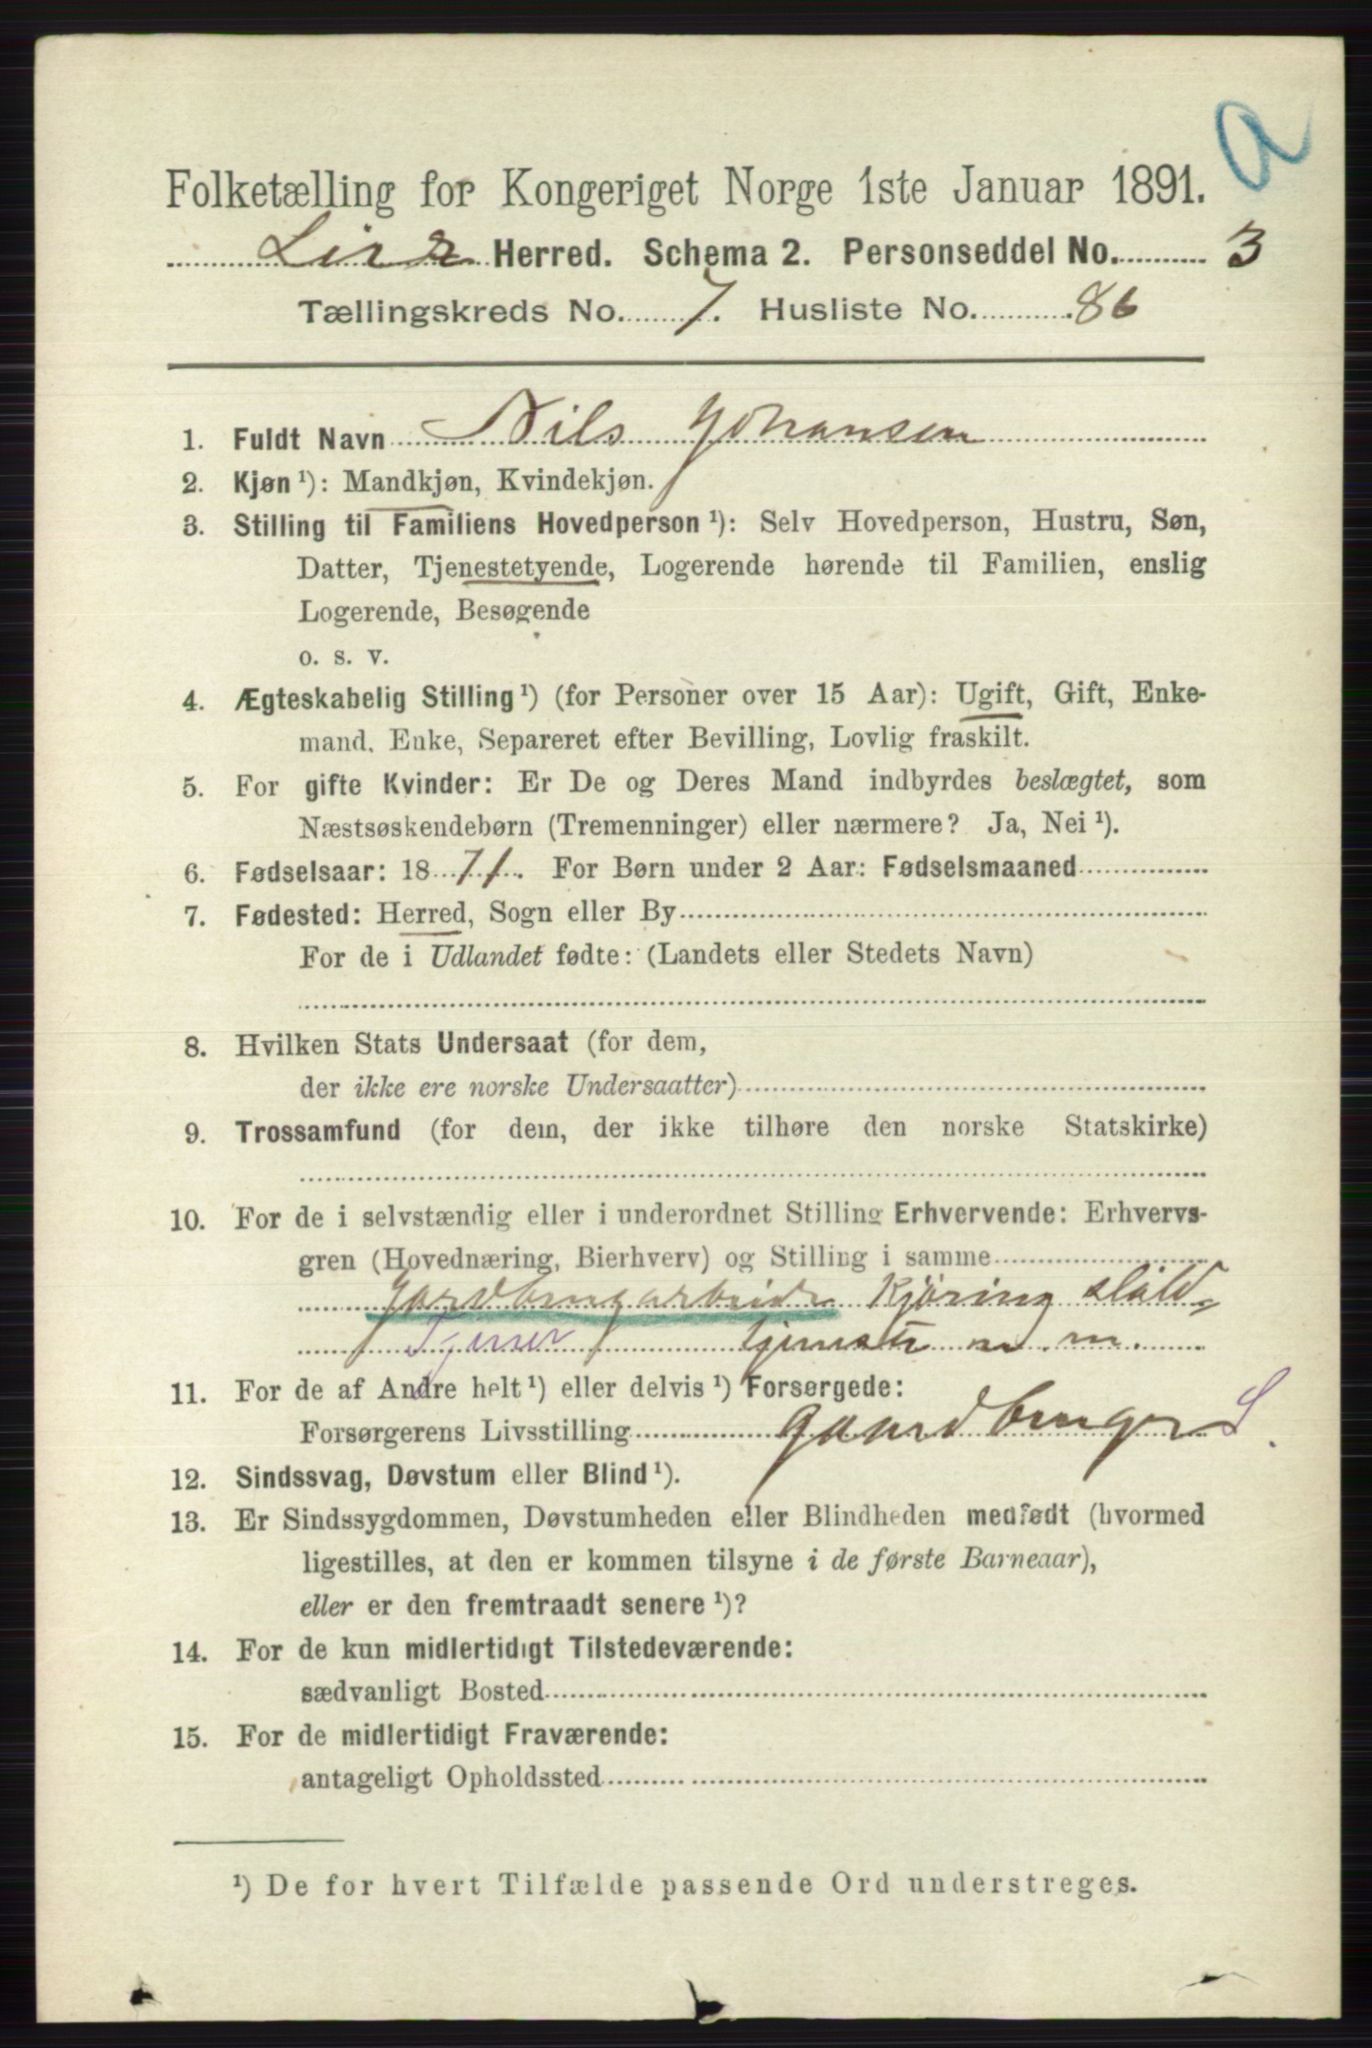 a
Folketælling for Kongeriget Norge 1ste Januar 1891.
Lier Herred. Schema 2. Personseddel No. 3
Tællingskreds No. 7. Husliste No. 86
1. Fuldt Navn Nils Johansen
2. Kjøn ¹): Mandkjøn, Kvindekjøn.
3. Stilling til Familiens Hovedperson ¹): Selv Hovedperson, Hustru, Søn,
Datter, Tjenestetyende, Logerende hørende til Familien, enslig
Logerende, Besøgende
o. s. v.
4. Ægteskabelig Stilling ¹) (for Personer over 15 Aar): Ugift, Gift, Enke-
mand, Enke, Separeret efter Bevilling, Lovlig fraskilt.
5. For gifte Kvinder: Er De og Deres Mand indbyrdes beslægtet, som
Næstsøskendebørn (Tremenninger) eller nærmere? Ja, Nei ¹).
6. Fødselsaar: 1871. For Børn under 2 Aar: Fødselsmaaned
7. Fødested: Herred, Sogn eller By
For de i Udlandet fødte: (Landets eller Stedets Navn)
8. Hvilken Stats Undersaat (for dem,
der ikke ere norske Undersaatter)
9. Trossamfund (for dem, der ikke tilhøre den norske Statskirke)
10. For de i selvstændig eller i underordnet Stilling Erhvervende: Erhvervs-
gren (Hovednæring, Bierhverv) og Stilling i samme
Jordbrugarbeide Kjöring
Tjener m.
11. For de af Andre helt ¹) eller delvis ¹) Forsørgede:
Forsørgerens Livsstilling Gaardbruger S.
12. Sindssvag, Døvstum eller Blind ¹).
13. Er Sindssygdommen, Døvstumheden eller Blindheden medfødt (hvormed
ligestilles, at den er kommen tilsyne i de første Barneaar),
eller er den fremtraadt senere ¹)?
14. For de kun midlertidigt Tilstedeværende:
sædvanligt Bosted
15. For de midlertidigt Fraværende:
antageligt Opholdssted
¹) De for hvert Tilfælde passende Ord understreges.